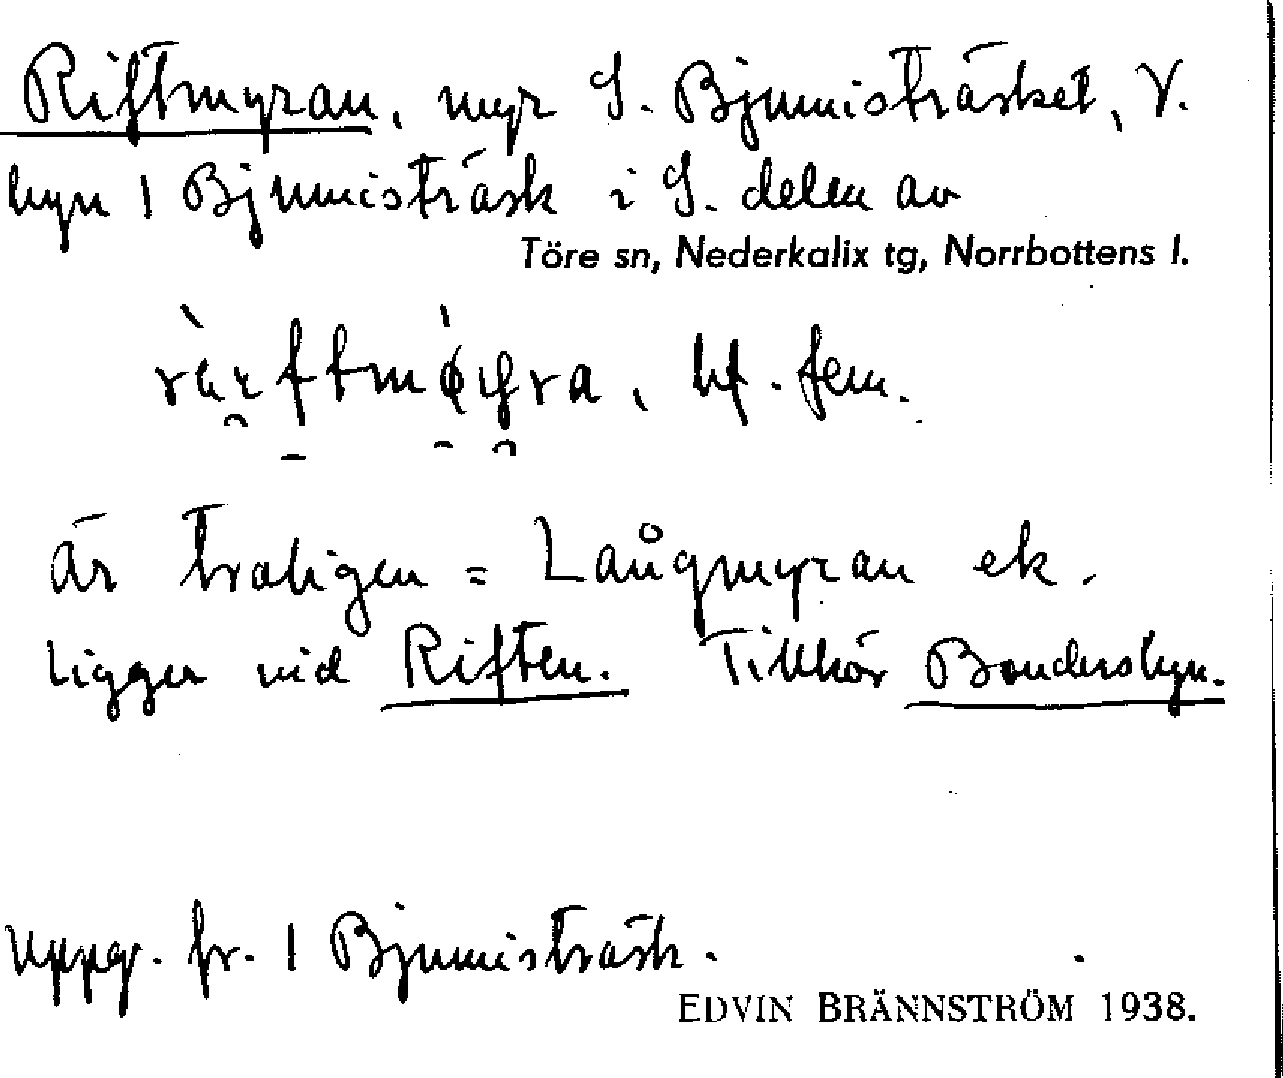 Riftmyran, myr S. Bjumisträsket, V.
byn 1 Bjumisträsk i S. delen av
Töre sn, Nederkalix tg, Norrbottens l.
bf. fem.
är troligen = Långmyran ek.
Ligger vid Riften. Tillhör Bondersbyn.
Uppg. fr. 1 Bjumisträsk.
EDVIN BRÄNNSTRÖM 1938.